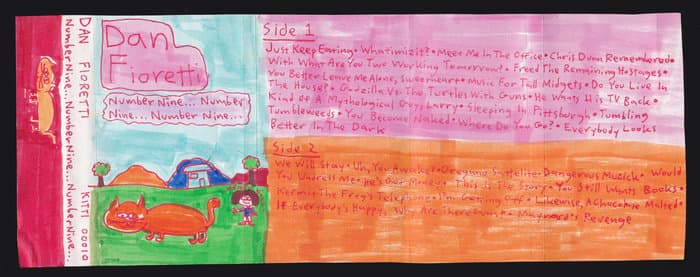 DAN FIORETTI
Number Nine... Number Nine... Number Nine...
KITTI 00010
Dan
Fioretti
Number Nine... Number
Nine... Number Nine...
Side 1
Just Keep Eating • Whatimizit? • Meet Me In The Office • Chris Dunn Remembered •
With What Are You Two Working Tomorrow? • Freed The Remaining Hostages •
You Better Leave Me Alone, Sweetheart • Music For Tall Midgets • Do You Live In
The House? • Godzilla Vs. The Turtles With Guns • He Wants His TV Back •
Kind Of A Mythological Guy, Larry • Sleeping In Pittsburgh • Tumbling
Tumbleweeds • You Become Naked • Where Do You Go? • Everybody Looks
Better In The Dark
Side 2
We Will Stay • Uh, You Awake? • Oregano Sattelite • Dangerous Muzick • Would
You Undress Me • He's Got Money • This Is The Story • You Still Wants Books •
Kermit The Frog's Telephone • I'm Getting Off • Likewise, A Chocolate Malted •
If Everybody's Happy, Why Are There • Maynard's Revenge